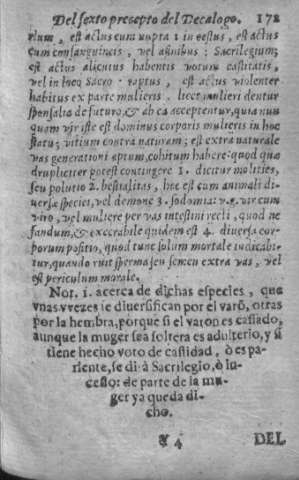 Del sexto precepto del Decalogo. 172
rium, est actus cum nupta 1 incestus, est actus
cum consanguineis, vel affinibus; Sacrilegium;
est actus alicuius habentis votum castitatis,
vel in loco Sacro raptus, est actus violenter
habitus ex parte mulieris, licet mulieri dentur
sponsalia de futuro, & ab ea acceptentur, quia nun
quam vir iste est dominus corporis mulieris in hoc
statu; vitium contra naturam; est extra naturale
vas generationi aptum, cohitum habere: quod qua
drupliciter potest contingere 1. dicitur molities,
seu polutio 2. bestialitas, hac est cum animali di-
versæ species, vel demone 3. sodomia: v.g. vir cum
viro, vel muliere per vas intestini recti, quod ne
fandum, & execrabile quidem est 4. diversa cor-
porum positio, quod tunc solum mortale iudicabi-
tur, quando ruit sperma seu semen extra vas, vel
est periculum morale.
Not. 1. acerca de dichas especies, que
vnas vezes se diversifican por el varõ, otras
por la hembra, porque si el varon es casado,
aunque la muger sea soltera es adulterio, y si
tiene hecho voto de castidad, ò es pa-
riente, se dirà Sacrilegio, ò In-
cesto: de parte de la mu-
ger ya queda di-
cho.
Y 4 DEL